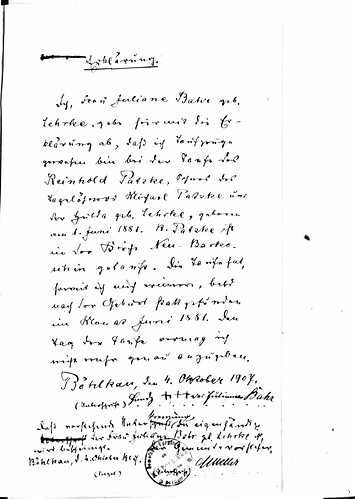 Erklärung.
Ich, Frau Juliane Bahr geb.
Lehrke, gebe hiermit die Er-
klärung ab, daß ich Taufzeuge
gewesen bin bei der Taufe des
Reinhold Patzke, Sohnes des
Tagelöhners Michael Patzke und
der Hulda geb. Lehrke, geboren
am 1. Juni 1881. R. Patzke ist
in der Kirche Neu-Barko-
schin getauft. Die Taufe hat,
soweit ich mich erinnere, bald
nach der Geburt stattgefunden
im Monat Juni 1881. Den
Tag der Taufe vermag ich
nicht mehr genau anzugeben.
Böhlkau, den 4. Oktober 1907.
(Unterschrift) +++ Juliane Bahr
Daß vorstehende Kreuzung die eigenhändige
der Frau Juliane Bahr geb. Lehrke ist,
wird bescheinigt. Der Gemeindevorsteher
Böhlkau, d. 4. Oktober 1907.
(Siegel) (Unterschrift)